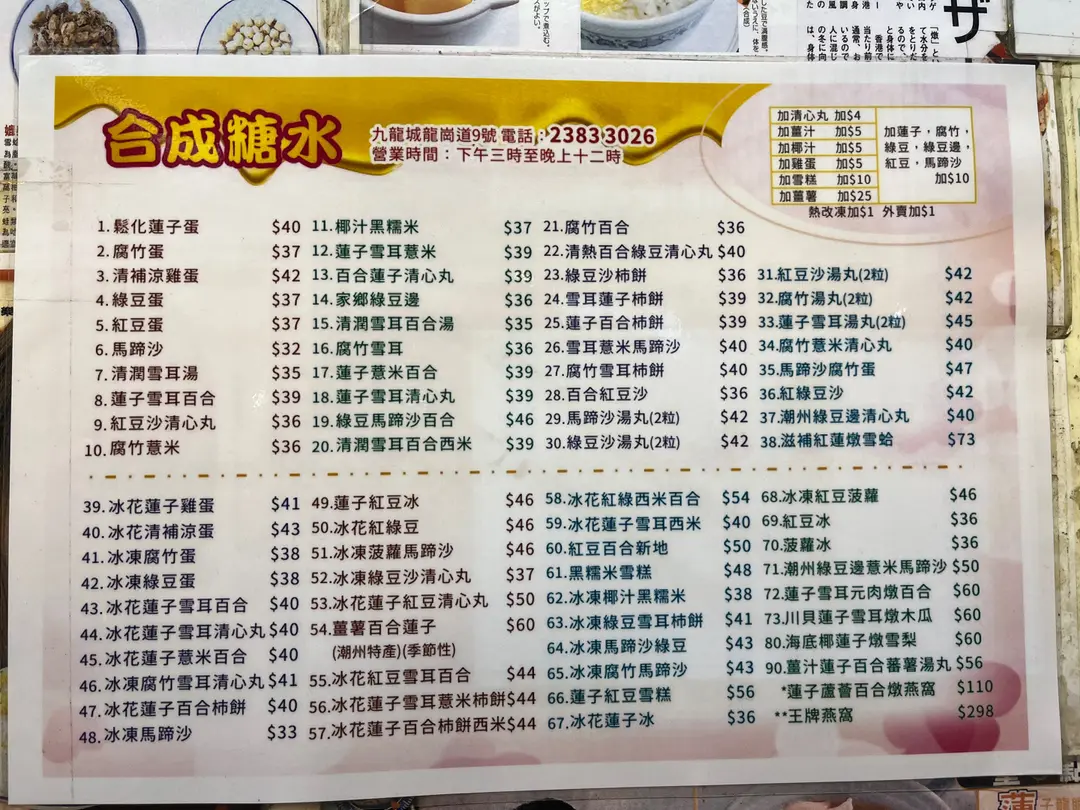 合成糖水
九龍城龍崗道9號 電話：2383 3026
營業時間：下午三時至晚上十二時
加清心丸 加$4
加薑汁 加$5
加椰汁 加$5
加雞蛋 加$5
加雪糕 加$10
加薑薯 加$25
加蓮子，腐竹，
綠豆，綠豆邊，
紅豆，馬蹄沙
加$10
熱改凍加$1 外賣加$1
1.鬆化蓮子蛋 $40
2.腐竹蛋 $37
3.清補涼雞蛋 $42
4.綠豆蛋 $37
5.紅豆蛋 $37
6.馬蹄沙 $32
7.清潤雪耳湯 $35
8.蓮子雪耳百合 $39
9.紅豆沙清心丸 $36
10.腐竹薏米 $36
11.椰汁黑糯米 $37
12.蓮子雪耳薏米 $39
13.百合蓮子清心丸 $39
14.家鄉綠豆邊 $36
15.清潤雪耳百合湯 $35
16.腐竹雪耳 $36
17.蓮子薏米百合 $39
18.蓮子雪耳清心丸 $39
19.綠豆馬蹄沙百合 $46
20.清潤雪耳百合西米 $39
21.腐竹百合 $36
22.清熱百合綠豆清心丸 $40
23.綠豆沙柿餅 $36
24.雪耳蓮子柿餅 $39
25.蓮子百合柿餅 $39
26.雪耳薏米馬蹄沙 $40
27.腐竹雪耳柿餅 $40
28.百合紅豆沙 $36
29.馬蹄沙湯丸(2粒) $42
30.綠豆沙湯丸(2粒) $42
31.紅豆沙湯丸(2粒) $42
32.腐竹湯丸(2粒) $42
33.蓮子雪耳湯丸(2粒) $45
34.腐竹薏米清心丸 $40
35.馬蹄沙腐竹蛋 $47
36.紅綠豆沙 $42
37.潮州綠豆邊清心丸 $40
38.滋補紅蓮燉雪蛤 $73
39.冰花蓮子雞蛋 $41
40.冰花清補涼蛋 $43
41.冰凍腐竹蛋 $38
42.冰凍綠豆蛋 $38
43.冰花蓮子雪耳百合 $40
44.冰花蓮子雪耳清心丸 $40
45.冰花蓮子薏米百合 $40
46.冰凍腐竹雪耳清心丸 $41
47.冰花蓮子百合柿餅 $40
48.冰凍馬蹄沙 $33
49.蓮子紅豆冰 $46
50.冰花紅綠豆 $46
51.冰凍菠蘿馬蹄沙 $46
52.冰凍綠豆沙清心丸 $37
53.冰花蓮子紅豆清心丸 $50
54.薑薯百合蓮子 $60
(潮州特產)(季節性)
55.冰花紅豆雪耳百合 $44
56.冰花蓮子雪耳薏米柿餅 $44
57.冰花蓮子百合柿餅西米 $44
58.冰花紅綠西米百合 $54
59.冰花蓮子雪耳西米 $40
60.紅豆百合新地 $50
61.黑糯米雪糕 $48
62.冰凍椰汁黑糯米 $38
63.冰凍綠豆雪耳柿餅 $41
64.冰凍馬蹄沙綠豆 $43
65.冰凍腐竹馬蹄沙 $43
66.蓮子紅豆雪糕 $56
67.冰花蓮子冰 $36
68.冰凍紅豆菠蘿 $46
69.紅豆冰 $36
70.菠蘿冰 $36
71.潮州綠豆邊薏米馬蹄沙 $50
72.蓮子雪耳元肉燉百合 $60
73.川貝蓮子雪耳燉木瓜 $60
80.海底椰蓮子燉雪梨 $60
90.薑汁蓮子百合蕃薯湯丸 $56
*蓮子蘆薈百合燉燕窩 $110
**王牌燕窩 $298